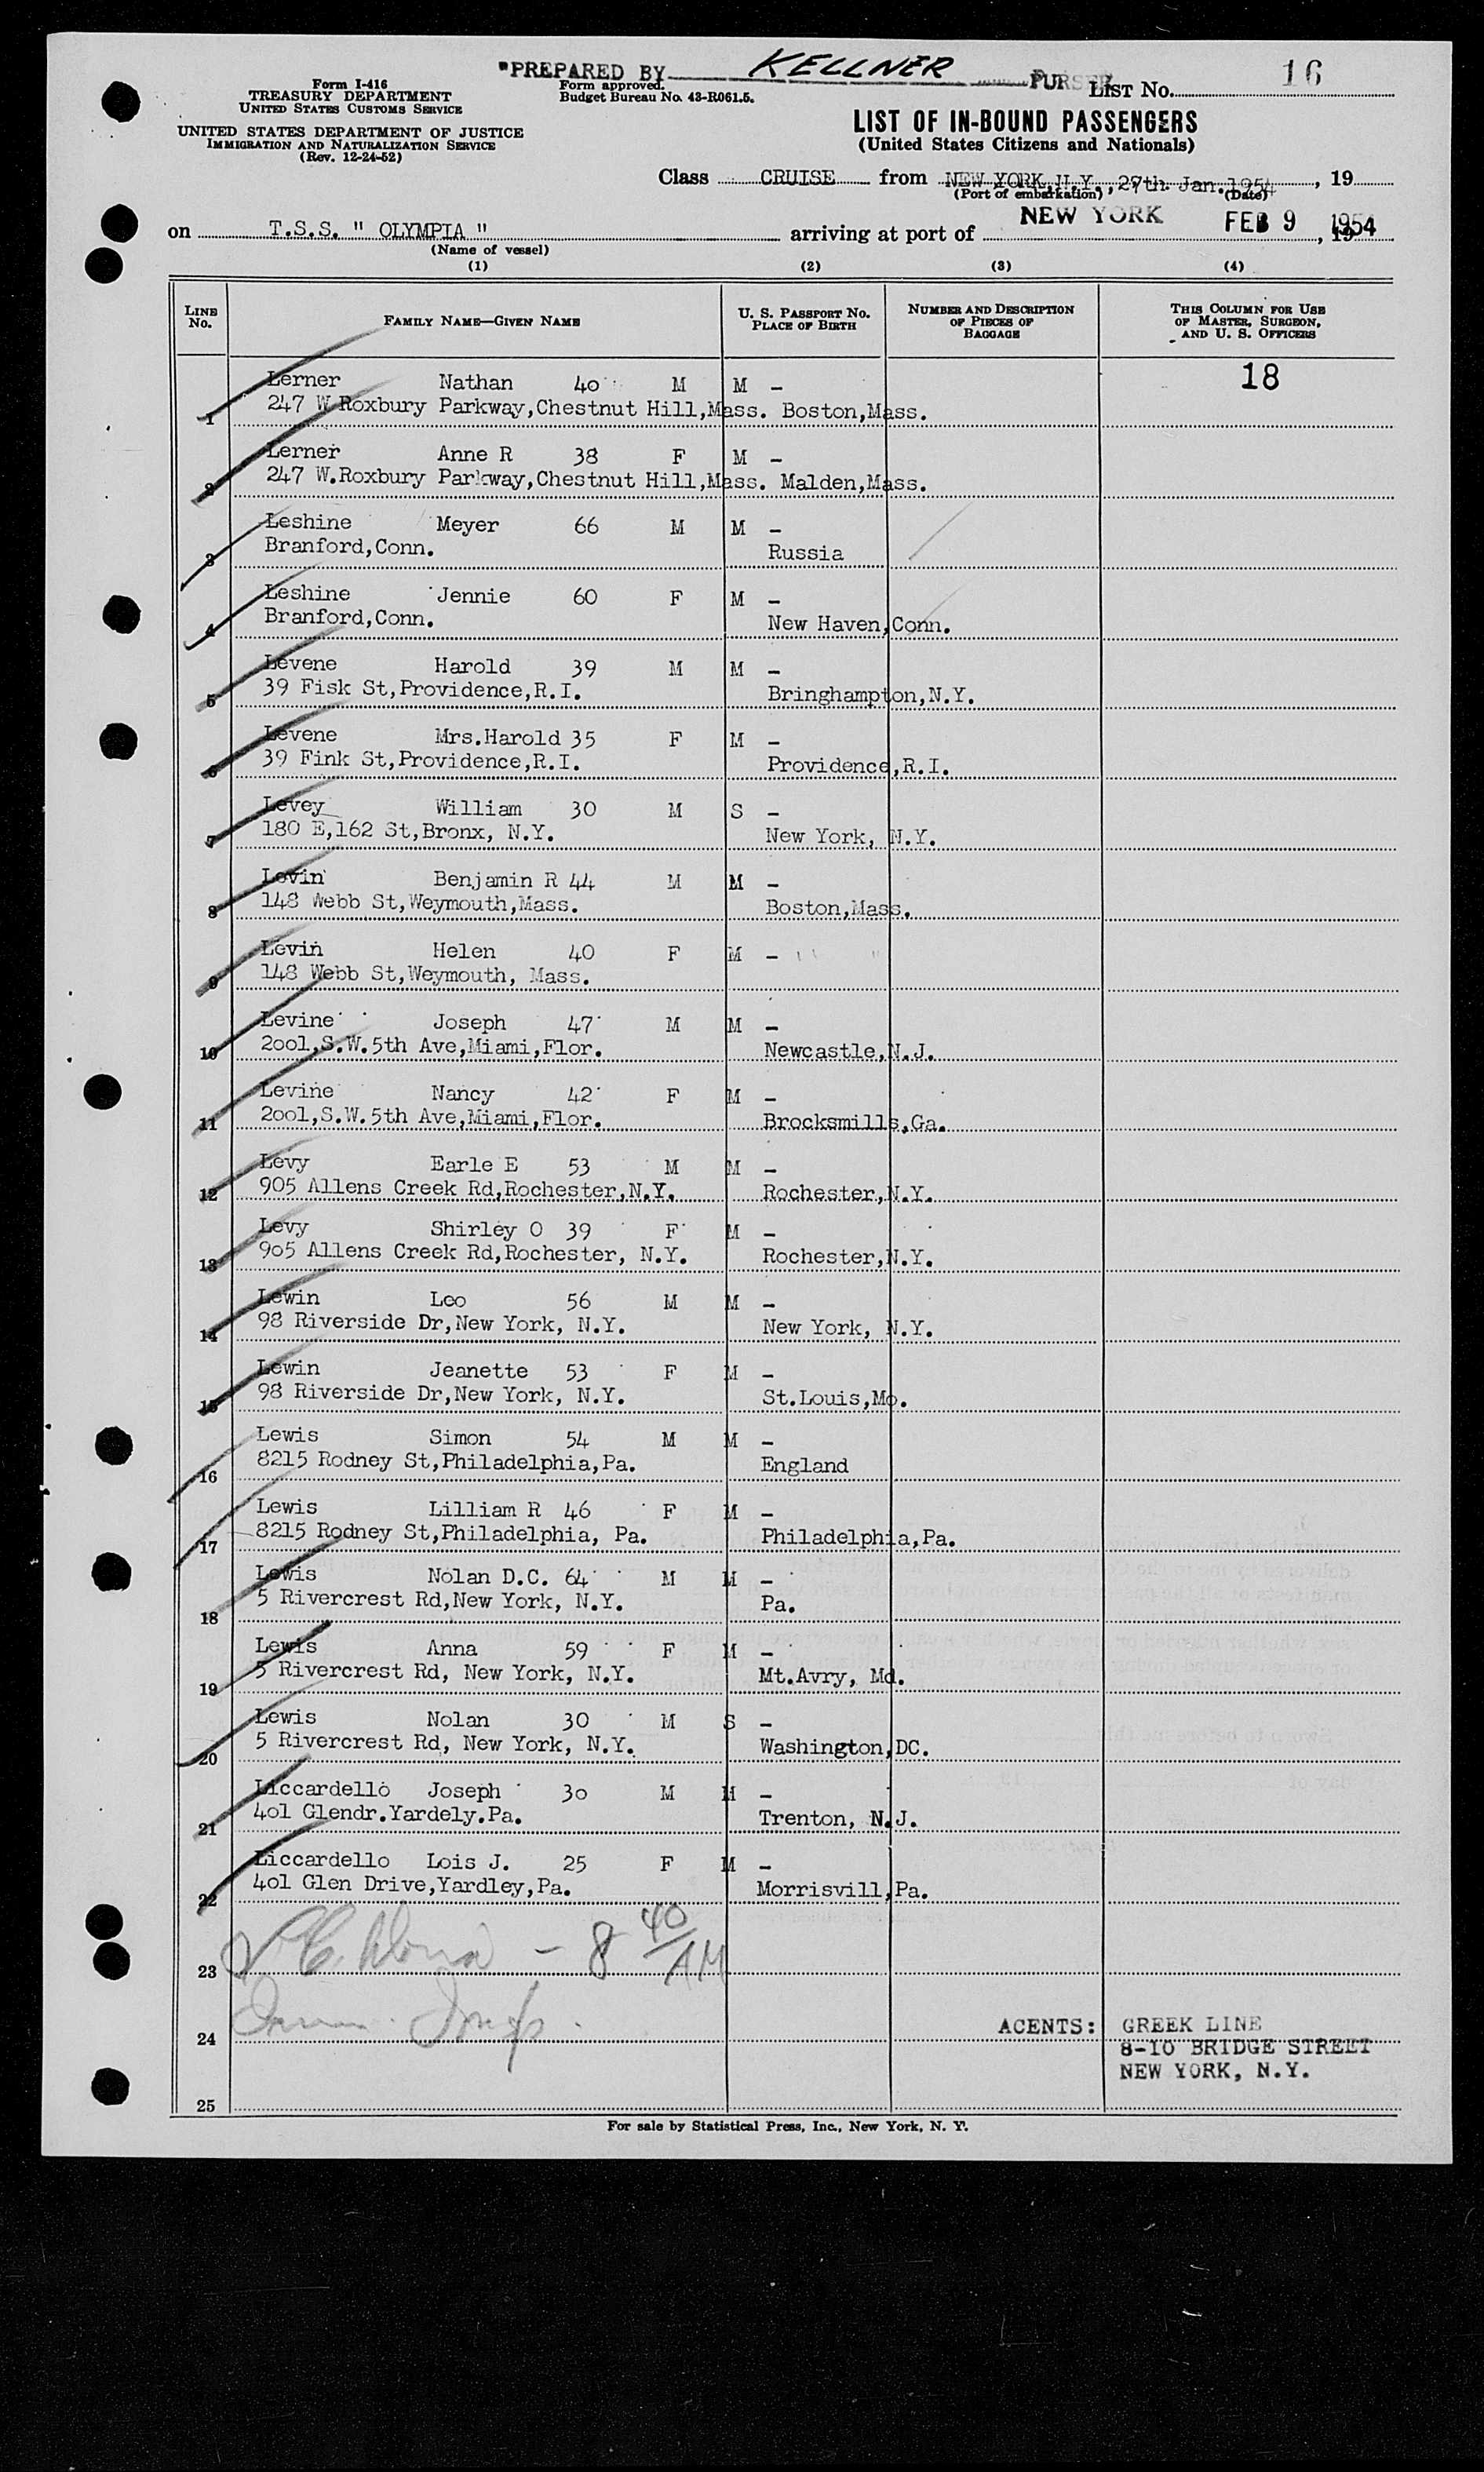 "PREPARED BY KELLNER PURSER
Form I-416
TREASURY DEPARTMENT
UNITED STATES CUSTOMS SERVICE
Form approved.
Budget Bureau No. 43-R061.5.
List No. 16
UNITED STATES DEPARTMENT OF JUSTICE
IMMIGRATION AND NATURALIZATION SERVICE
(Rev. 12-24-52)
LIST OF IN-BOUND PASSENGERS
(United States Citizens and Nationals)
Class CRUISE from NEW YORK,N.Y.,27th. Jan.1954, 19
(Port of embarkation) (Date)
on T.S.S. " OLYMPIA " arriving at port of NEW YORK FEB 9, 1954
(Name of vessel)
(1) (2) (3) (4)
LINE No. FAMILY NAME—GIVEN NAME U. S. PASSPORT NO. PLACE OF BIRTH NUMBER AND DESCRIPTION OF PIECES OF BAGGAGE THIS COLUMN FOR USE OF MASTER, SURGEON, AND U. S. OFFICERS
18
Lerner Nathan 40 M M -
1 247 W Roxbury Parkway,Chestnut Hill,Mass. Boston,Mass.
Lerner Anne R 38 F M -
2 247 W.Roxbury Parkway,Chestnut Hill,Mass. Malden,Mass.
Leshine Meyer 66 M M -
3 Branford,Conn. Russia
Leshine Jennie 60 F M -
4 Branford,Conn. New Haven,Conn.
Levene Harold 39 M M -
5 39 Fisk St,Providence,R.I. Bringhampton,N.Y.
Levene Mrs.Harold 35 F M -
6 39 Fink St,Providence,R.I. Providence,R.I.
Levey William 30 M S -
7 180 E,162 St,Bronx, N.Y. New York, N.Y.
Levin Benjamin R 44 M M -
8 148 Webb St,Weymouth,Mass. Boston,Mass.
Levin Helen 40 F M - " "
9 148 Webb St,Weymouth, Mass.
Levine Joseph 47 M M -
10 2001,S.W.5th Ave,Miami,Flor. Newcastle,N.J.
Levine Nancy 42 F M -
11 2001,S.W.5th Ave,Miami,Flor. Brocksmills,Ga.
Levy Earle E 53 M M -
12 905 Allens Creek Rd,Rochester,N.Y. Rochester,N.Y.
Levy Shirley O 39 F M -
13 905 Allens Creek Rd,Rochester, N.Y. Rochester,N.Y.
Lewin Leo 56 M M -
14 98 Riverside Dr,New York, N.Y. New York, N.Y.
Lewin Jeanette 53 F M -
15 98 Riverside Dr,New York, N.Y. St.Louis,Mo.
Lewis Simon 54 M M -
16 8215 Rodney St,Philadelphia,Pa. England
Lewis Lilliam R 46 F M -
17 8215 Rodney St,Philadelphia, Pa. Philadelphia,Pa.
Lewis Nolan D.C. 64 M M -
18 5 Rivercrest Rd,New York, N.Y. Pa.
Lewis Anna 59 F M -
19 5 Rivercrest Rd, New York, N.Y. Mt.Avry, Md.
Lewis Nolan 30 M S -
20 5 Rivercrest Rd, New York, N.Y. Washington,DC.
Liccardello Joseph 30 M M -
21 401 Glendr.Yardely.Pa. Trenton, N.J.
Liccardello Lois J. 25 F M -
22 401 Glen Drive,Yardley,Pa. Morrisvill,Pa.
23 - 8 40/AM
24
ACENTS: GREEK LINE
8-10 BRIDGE STREET
NEW YORK, N.Y.
25
For sale by Statistical Press, Inc., New York, N. Y.